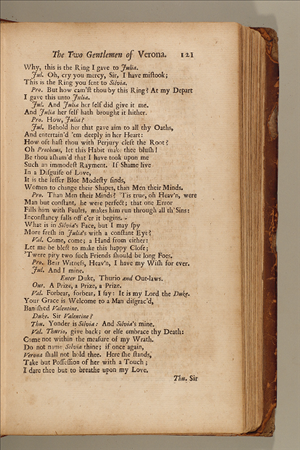 The Two Gentlemen of Verona. 121
Why, this is the Ring I gave to Julia.
Jul. Oh, cry you mercy, Sir, I have mistook;
This is the Ring you sent to Silvia.
Pro. But how cam'st thou by this Ring? At my Depart
I gave this unto Julia.
Jul. And Julia her self did give it me.
And Julia her self hath brought it hither.
Pro. How, Julia?
Jul. Behold her that gave aim to all thy Oaths,
And entertain'd 'em deeply in her Heart:
How oft hast thou with Perjury cleft the Root?
Oh Protheus, let this Habit make thee blush!
Be thou asham'd that I have took upon me
Such an immodest Rayment. If Shame live
In a Disguise of Love,
It is the lesser Blot Modesty finds,
Women to change their Shapes, than Men their Minds.
Pro. Than Men their Minds? 'Tis true, oh Heav'n, were
Man but constant, he were perfect; that one Error
Fills him with Faults, makes him run through all th' Sins:
Inconstancy falls off e'er it begins.
What is in Silvia's Face, but I may spy
More fresh in Julia's with a constant Eye?
Val. Come, come; a Hand from either:
Let me be blest to make this happy Close;
'Twere pity two such Friends should be long Foes.
Pro. Bear Witness, Heav'n, I have my Wish for ever.
Jul. And I mine.
Enter Duke, Thurio and Out-laws.
Out. A Prize, a Prize, a Prize.
Val. Forbear, forbear, I say: It is my Lord the Duke.
Your Grace is Welcome to a Man disgrac'd,
Banished Valentine.
Duke. Sir Valentine?
Thu. Yonder is Silvia: And Silvia's mine.
Val. Thurio, give back; or else embrace thy Death:
Come not within the measure of my Wrath.
Do not name Silvia thine; if once again,
Verona shall not hold thee. Here she stands,
Take but Possession of her with a Touch;
I dare thee but to breathe upon my Love.
Thu. Sir